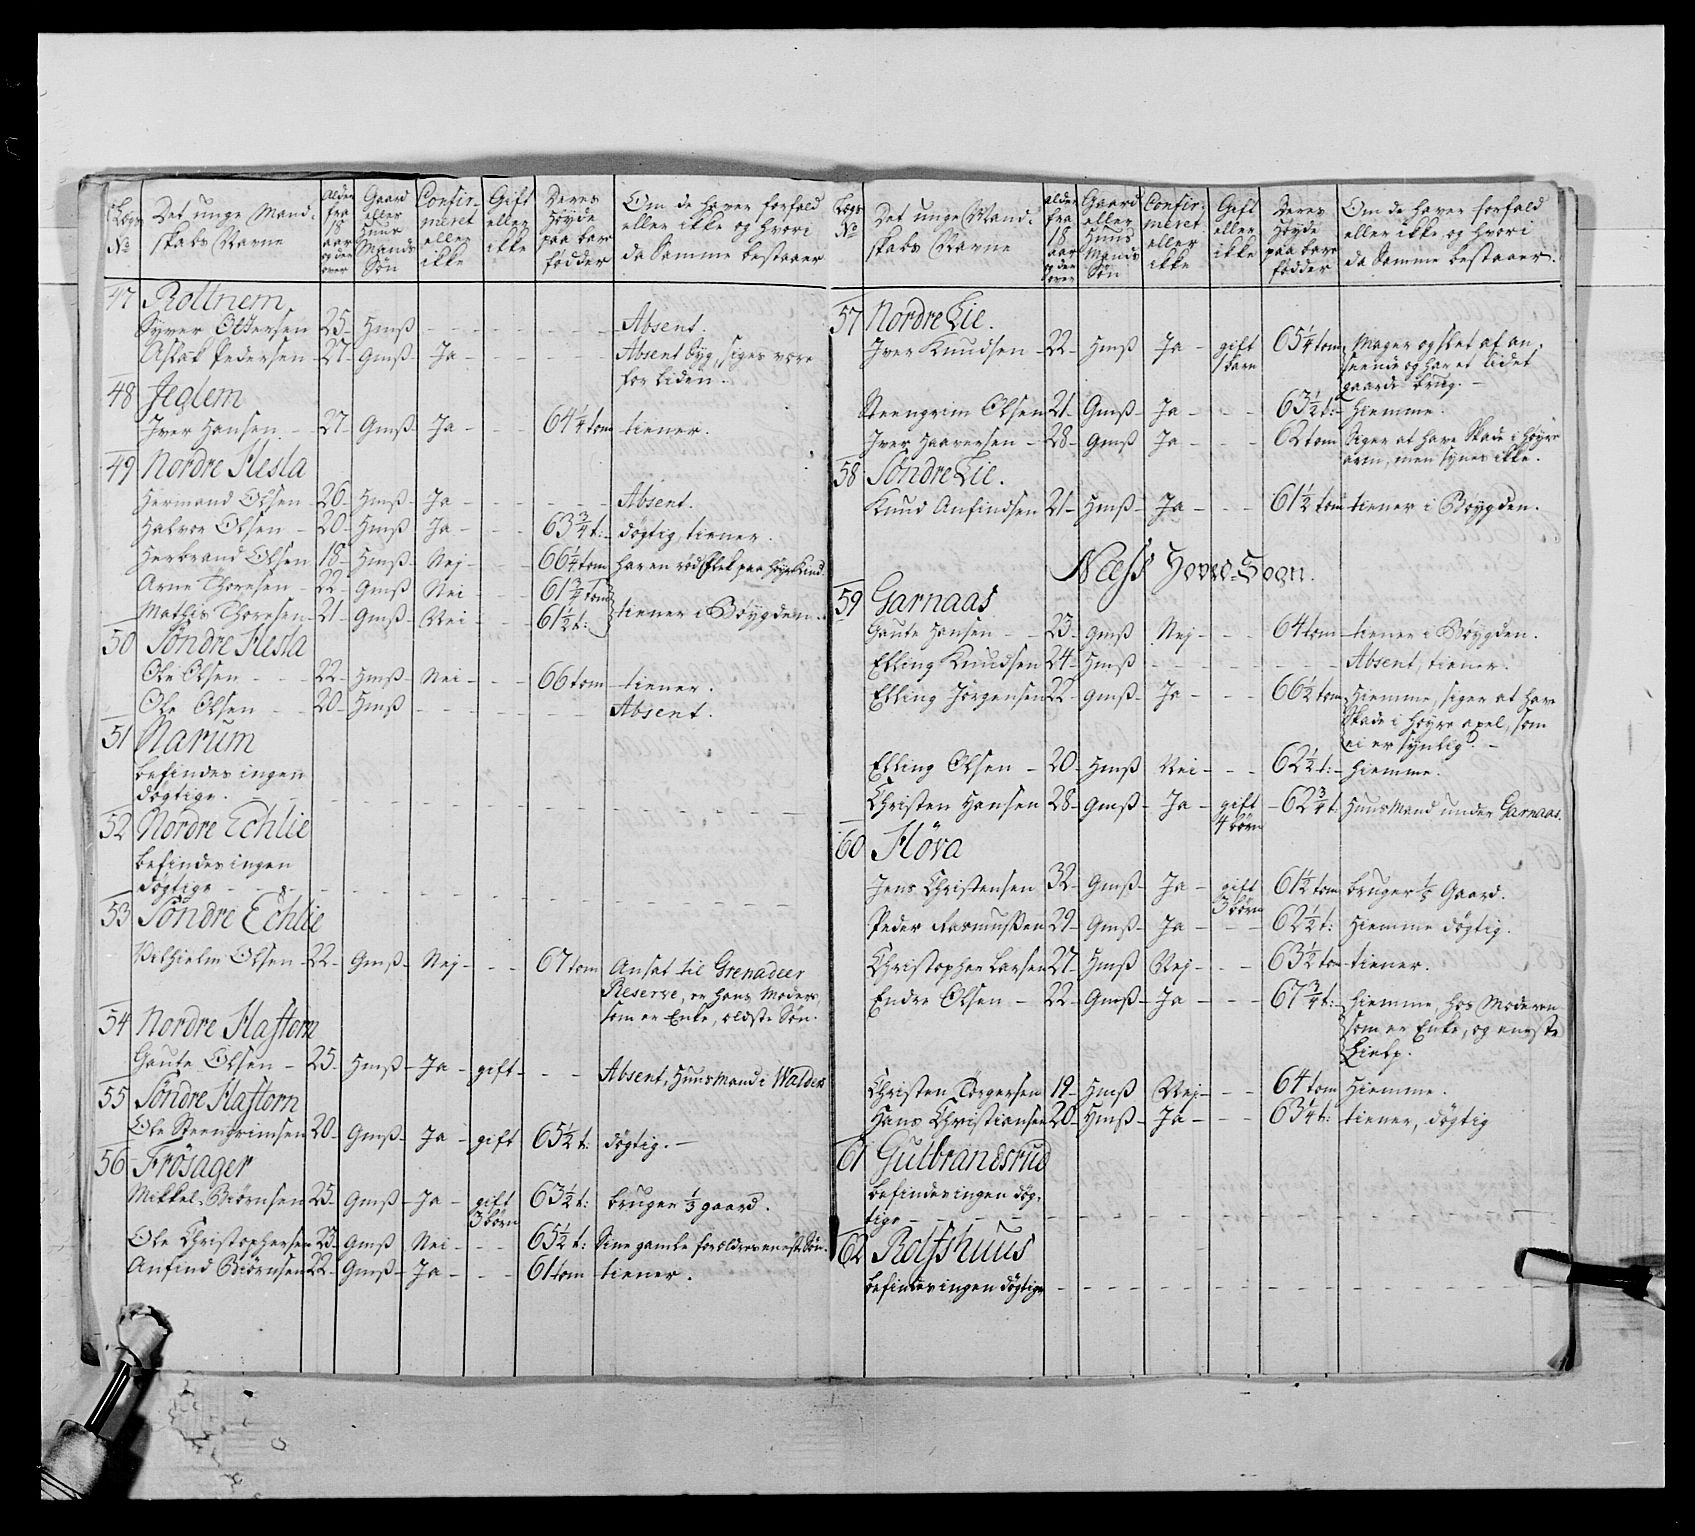 Lægs No | Det unge Mandskabs Navne | Alder fra 18 aar og der over | Gaard eller Huus Mands Søn | Confirmeret eller ikke | Gift eller ikke | Deres Høyde paa bare fødder | Om de haver forfald eller ikke og hvori da Samme bestaaer
47 Rottnem
Syver Ottersen 25 - Hmß - - - Absent.
Aslak Pedersen - 27 - Gmß - Ja - - - Absent syg, siges være
for liden.
48 Jeglem
Iver Hansen - 27 - Gmß - Ja - - 64 1/4 tom tiener.
49 Nordre Hesla
Hermand Olsen - 26 - Hmß - Ja - - - Absent.
Halvor Olsen - 20 - Hmß - Ja - - 63 3/4 t: døgtig, tiener.
Herbrand Olsen 18 - Hmß - Nej - - 66 1/4 tom har en rød Flek paa Høyre Kind.
Arne Thoresen - 22 - Gmß - Nei - - 61 3/4 tom
Mathis Thoresen - 21 - Gmß - Nei - - 61 1/2 t: tiener i Bøygden.
50 Søndre Hesla
Ole Olsen - - 22 - Hmß - Nei - - 66 tom tiener.
Ole Olsen - - 20 - Hmß - - - Absent.
51 Narum
befindes ingen
døgtige.
52 Nordre Echlie
befindes ingen
døgtige
53 Søndre Echlie
Vilhielm Olsen - 22 - Gmß - Nej - - 67 tom Ansat til Grenadeer
Reserve, er hans Moders,
som er Enke, ældste Søn.
54 Nordre Haftorn
Gaute Olsen - 25 - Hmß - Ja - gift - - Absent, Huusmand i Walders
55 Søndre Haftorn
Ole Steengrimsen 20 - Gmß - Ja - gift 65 1/2 t: døgtig. -
56 Frøsager
Mikkel Biørnsen 25 - Gmß - Ja - gift 63 1/2 t: bruger 1/3 gaard.
3 børn
Ole Christophersen 23 - Gmß Nei - - 65 1/2 t: Sine gamle forældres eneste Søn.
Anfind Biørnsen 22 - Gmß - Ja - - 61 tom tiener.
Lægs No | Det unge Mandskabs Navne | alder fra 18 aar og der over | Gaard eller Huus Mands Søn | Confirmeret eller ikke | Gift eller ikke | Deres Høyde paa bare fødder | Om de haver forfald eller ikke og hvori da Samme bestaaer.
57 Nordre Lie.
Iver Knudsen - 22 - Hmß Ja - gift 65 1/4 tom Mager og slet af an-
1 barn seende og har et lidet
gaards brug. -
Steengrim Olsen 21 - Gmß - Ja - - 63 1/2 t: hiemme.
Iver Haaversen - 28 - Gmß Ja - - 62 tom Siger at have Skade i høyre
arm, men synes ikke.
58 Søndre Lie.
Knud Anfindsen 21 - Hmß - Ja - - 61 1/2 tom tiener i Bøygden.
Næss Hoved-Sogn.
59 Garnaas
Gaute Hansen - 23 - Gmß Nej - - 64 tom - tiener i Bøygden.
Elling Knudsen 24 - Hmß - - - Absent, tiener.
Elling Jørgensen 22 Gmß - Ja - - 66 1/2 tom Hiemme, siger at have
Skade i Høyre axel, som
ei er synlig. -
Elling Olsen - 20 - Hmß Nei - - 62 1/2 t: - hiemme.
Christen Hansen 28 - Gmß - Ja - gift - 62 3/4 t Huusmand under Garnaas.
4 børn
60 Høva
Jens Christensen 32 - Gmß - Ja - gift 61 1/2 tom bruger 1/3 Gaard.
3 børn
Peder Rasmußen 29 - Gmß - Ja - - 62 1/2 t: Hiemme døgtig.
Christopher Larsen 27 - Hmß Nej - - 63 1/2 tom tiener.
Endre Olsen - 22 - Gmß - Ja - - 67 3/4 t: hiemme hos Moderen
som er Enke, og eneste
hielp.
Christen Torgersen 19 - Hmß Nej - - 64 tom Hiemme.
Hans Christiansen 20 - Hmß - Ja - - 63 1/4 t: tiener, døgtig
61 Gulbrandsrud
befindes ingen døg-
tige
62 Rolfshuus
befindes ingen døgtige